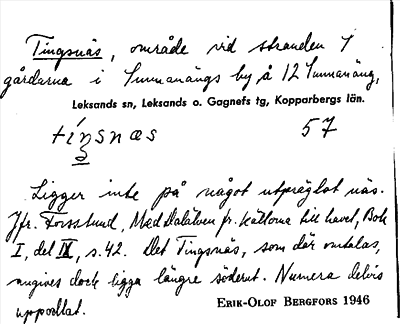 Tingsnäs, område vid stranden 4
gårdarna i Sunnanängs by å 12 Sunnanäng,
Leksands sn, Leksands o. Gagnefs tg, Kopparbergs län.
tíŋsnæs 57
Ligger inte på något utpräglat näs.
Jfr. Forsslund, Med Dalälven fr. källorna till havet, Bok
I, del IX, s. 42. Det Tingsnäs, som där omtalas,
angives dock ligga längre söderut. Numera delvis
uppodlat. ERIK-OLOF BERGFORS 1946